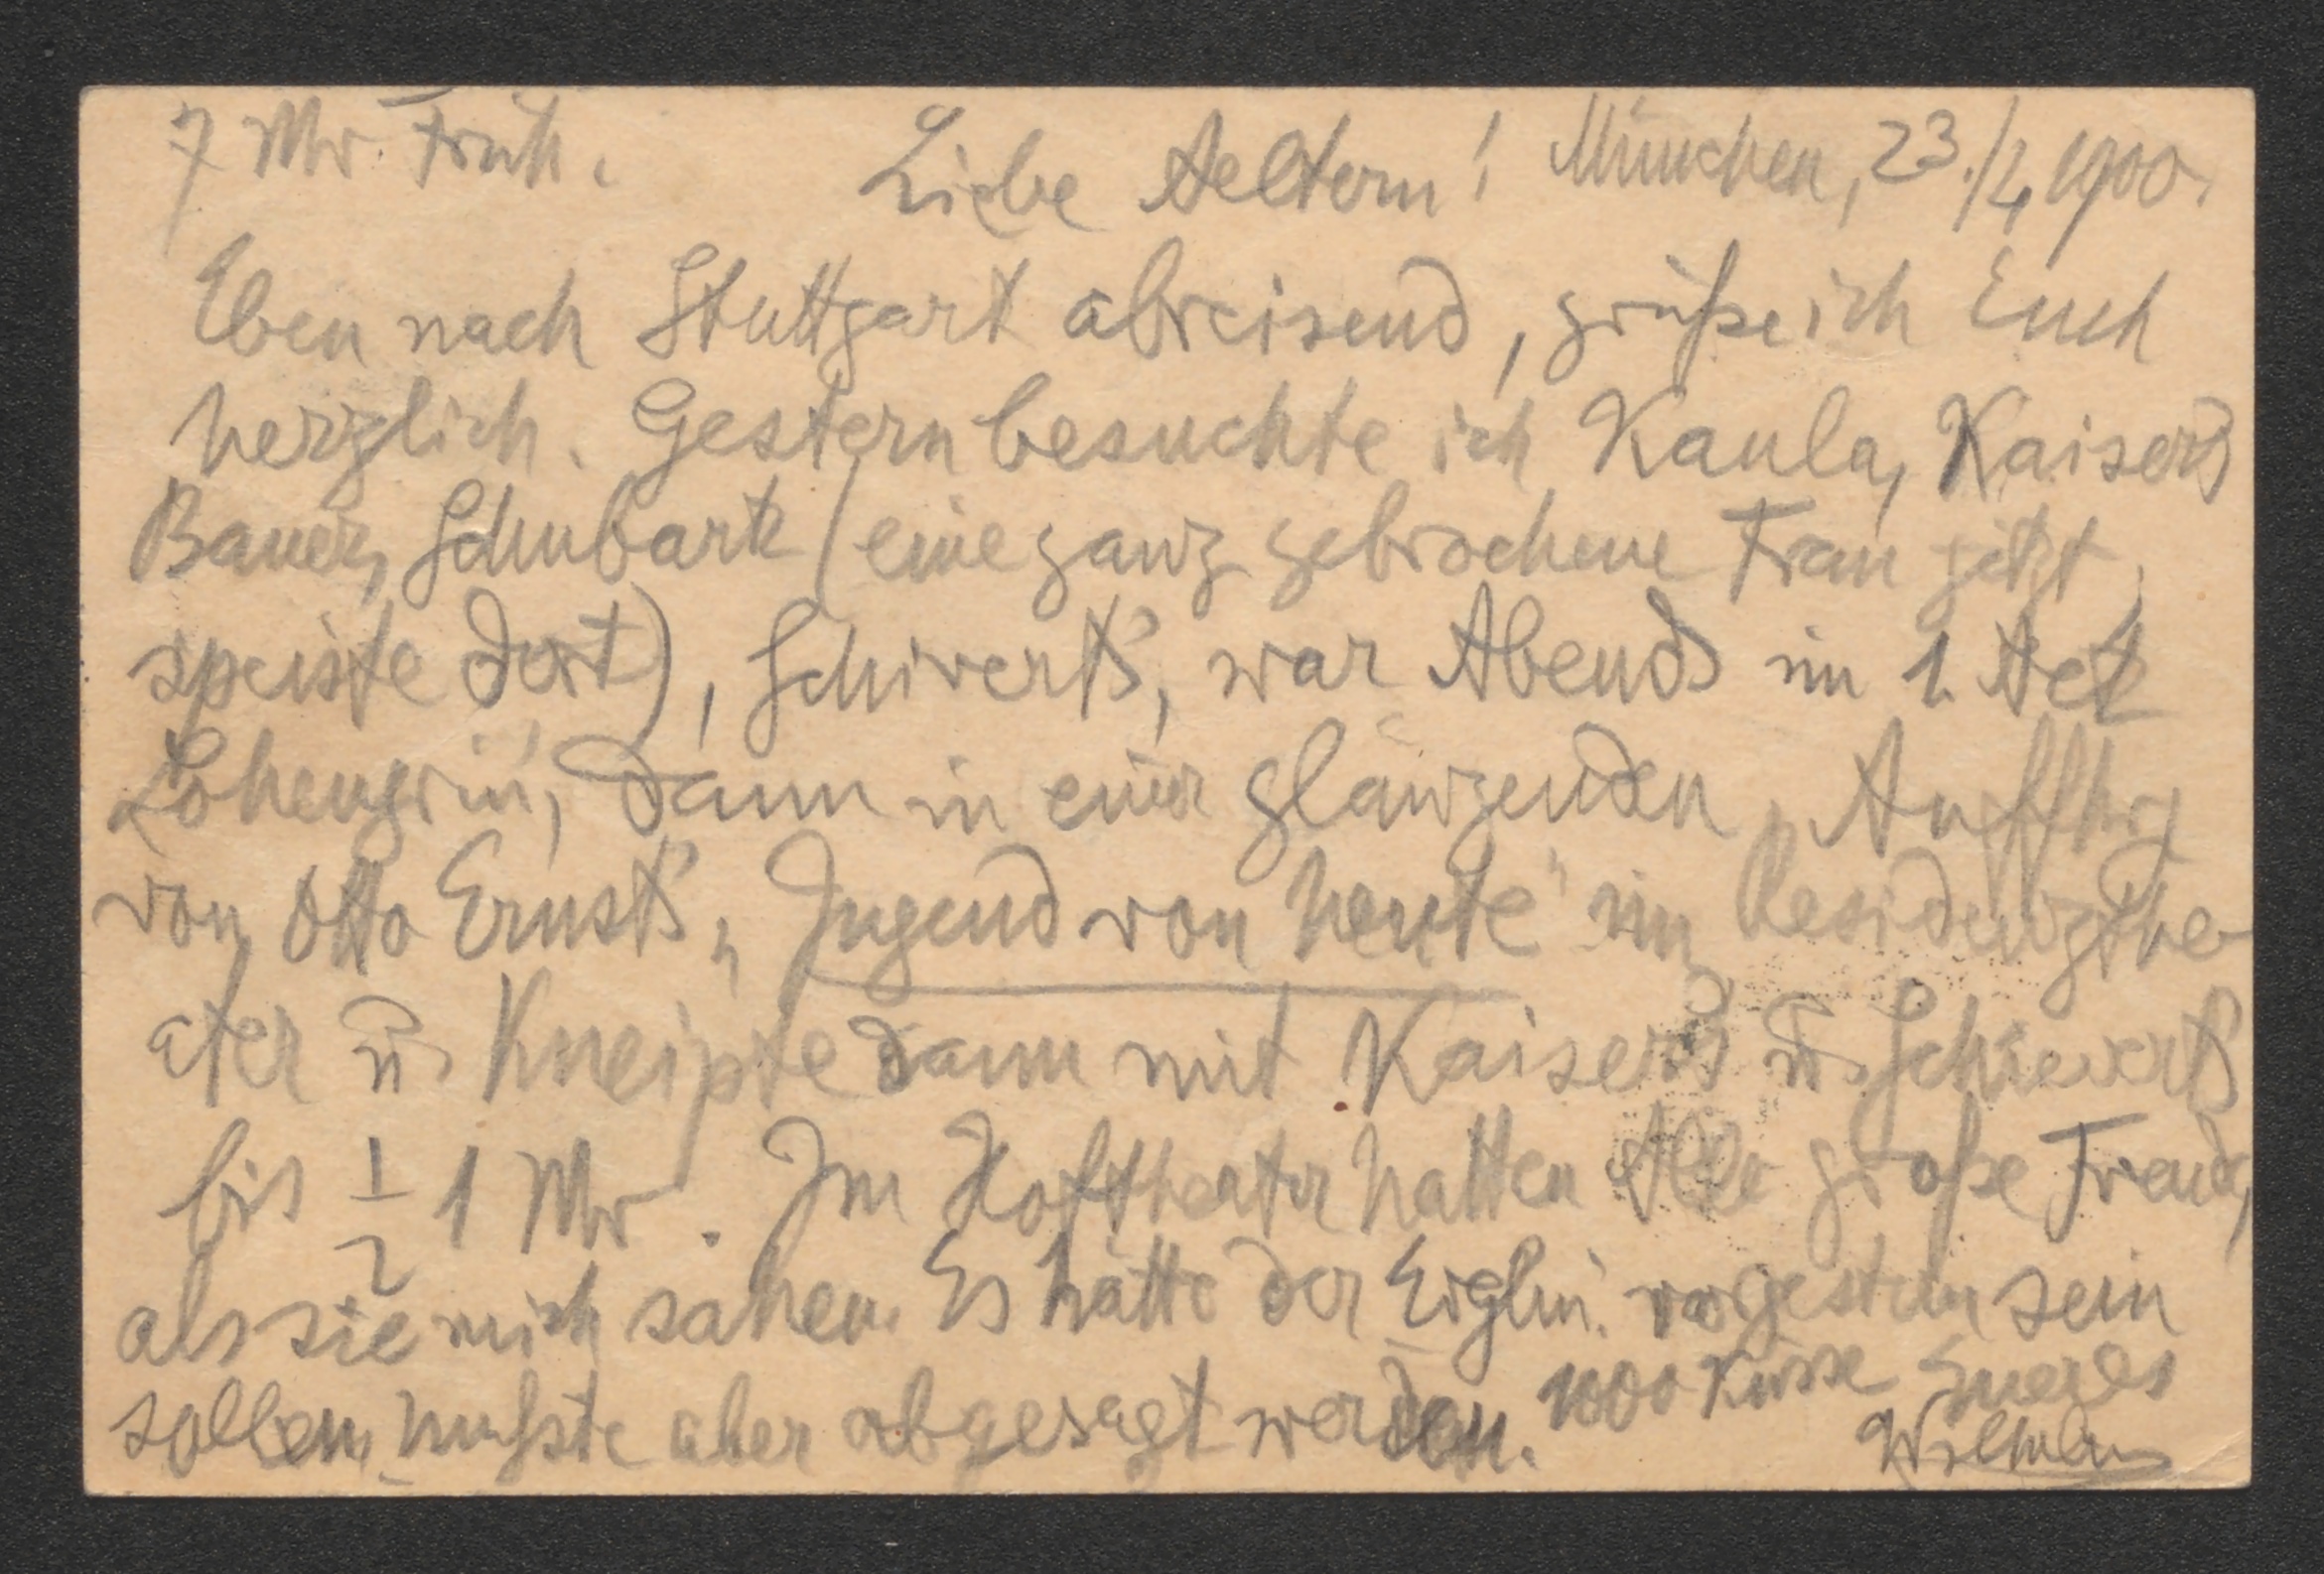 7 Uhr Früh. Liebe Aeltern! München, 23./4 1900.
Eben nach Stuttgart abreisend, grüße ich Euch
herzlich. Gestern besuchte ich Kaula, Kaisers
Bauer, Schubart (eine ganz gebrochene Frau jetzt,
speiste dort), Schiverts, war Abends im 1. Act
Lohengrin, dann in einer glänzenden
von Otto Ernsts, „Jugend von heute" im Residenzthe-
ater u. kneipte dann mit Kaisers u. Schieverts
bis ½ 1 Uhr. Im Hoftheater hatten Alle große Freude,
als sie mich sahen. Es hätte der vorgestern sein
sollen, mußte aber abgesagt werden. 1000 Küsse Eueres
Wilhelm